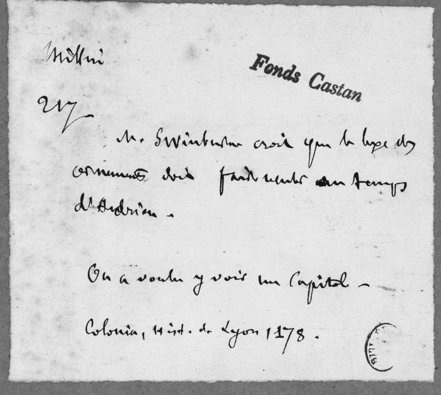 Millin
Fonds Castan
217
M. Swinburne croit que le luxe des
ornements doit faire remonter au temps
d'Adrien.
On a voulu y voir un Capitol.
Colonia, Hist. de Lyon, 178.